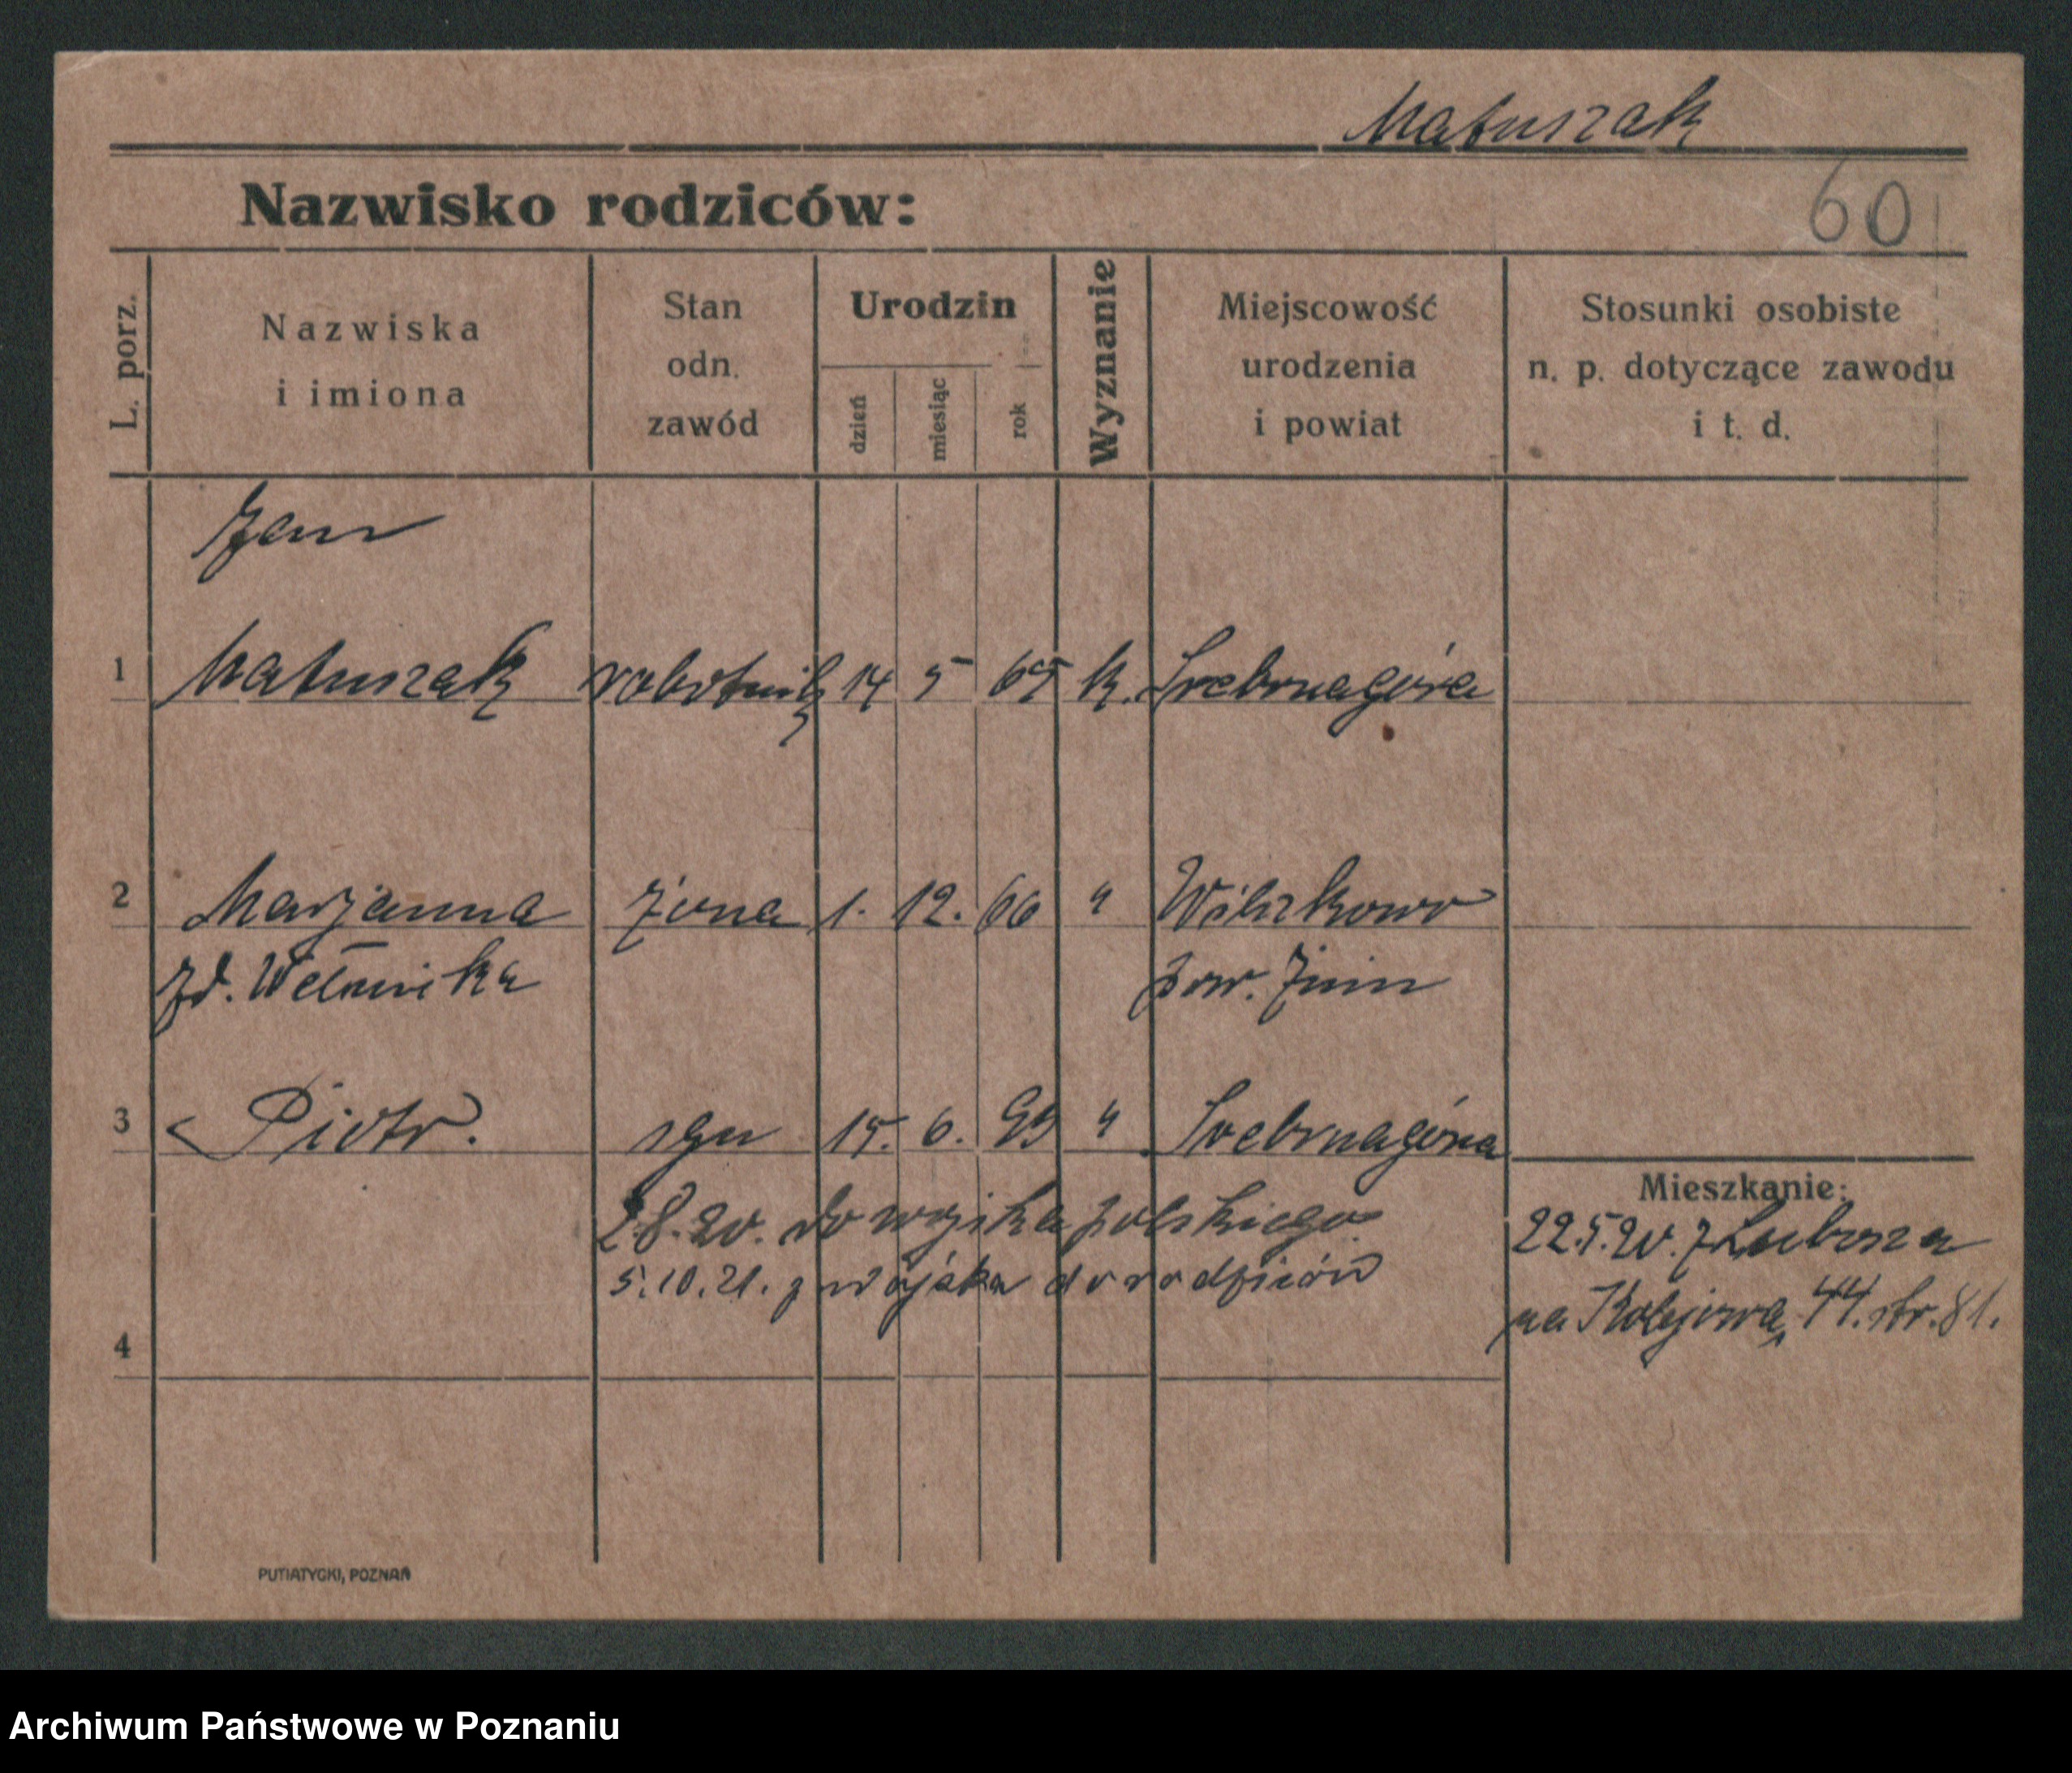 Matuszak
Nazwisko rodziców:
60
L. porz.
Nazwiska
i imiona
Stan
odn.
zawód
Urodzin
dzień
miesiąc
rok
Wyznanie
Miejscowość
urodzenia
i powiat
Stosunki osobiste
n. p. dotyczące zawodu
i t. d.
Jan
1 Matuszak robotnik 14 5 65 k. Srebrnagóra
2 Marjanna żona 1. 12. 66 " Wilszkowo
zd. Wełnicka pow. Żnin
3 Piotr. syn 15. 6. 99 " Srebrnagóra
Mieszkanie:
2.8.20. do wojska polskiego
22.5.20. z Lubosza
5.10.21. z wojska do rodziców
na Kolejową 44. str. 81.
4
PUTIATYCKI, POZNAŃ
Archiwum Państwowe w Poznaniu